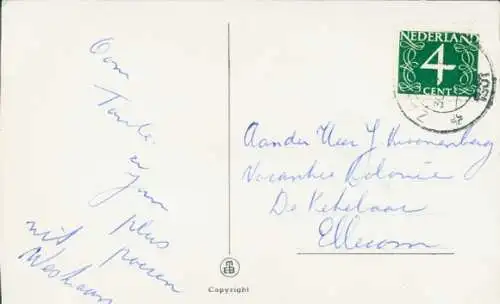 Oom
Tante.
en Jan
plus
poesen
uit
NEDERLAND
4
CENT
1951
Aan der Heer J Kronenberg
Vacantie Kolonie
De Kekelaar
Ellecom
Copyright